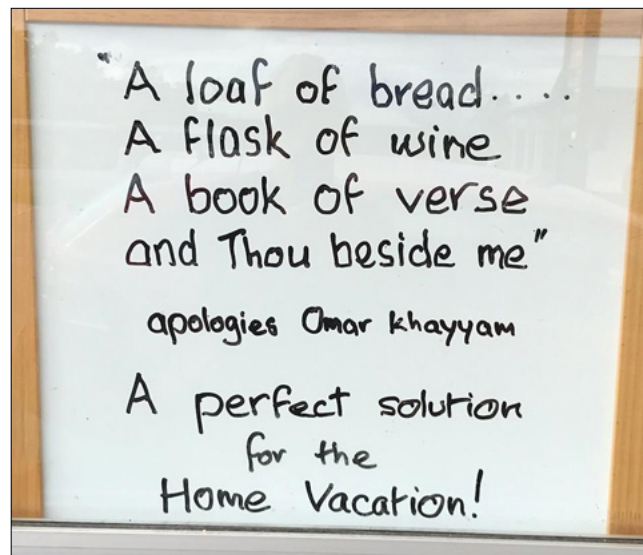 "A loaf of bread....
A flask of wine
A book of verse
and Thou beside me"
apologies Omar Khayyam
A perfect solution
for the
Home Vacation!